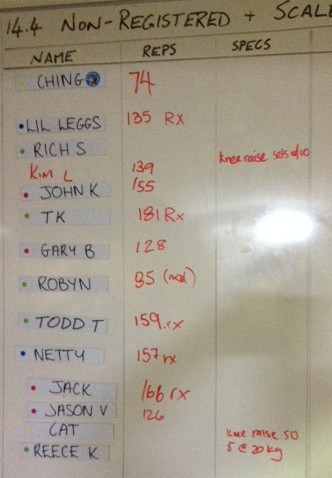 14.4 NON-REGISTERED + SCALE
NAME REPS SPECS
CHING 74
LIL LEGGS 135 RX
RICH S knee raise sets of 10
KIM L 139
JOHN K 155
TK 181 Rx
GARY B 128
ROBYN 85 (mod)
TODD T 159.rx
NETTY 157 rx
JACK 166 rx
JASON V 126
CAT knee raise 50
REECE K 5 @ 20kg